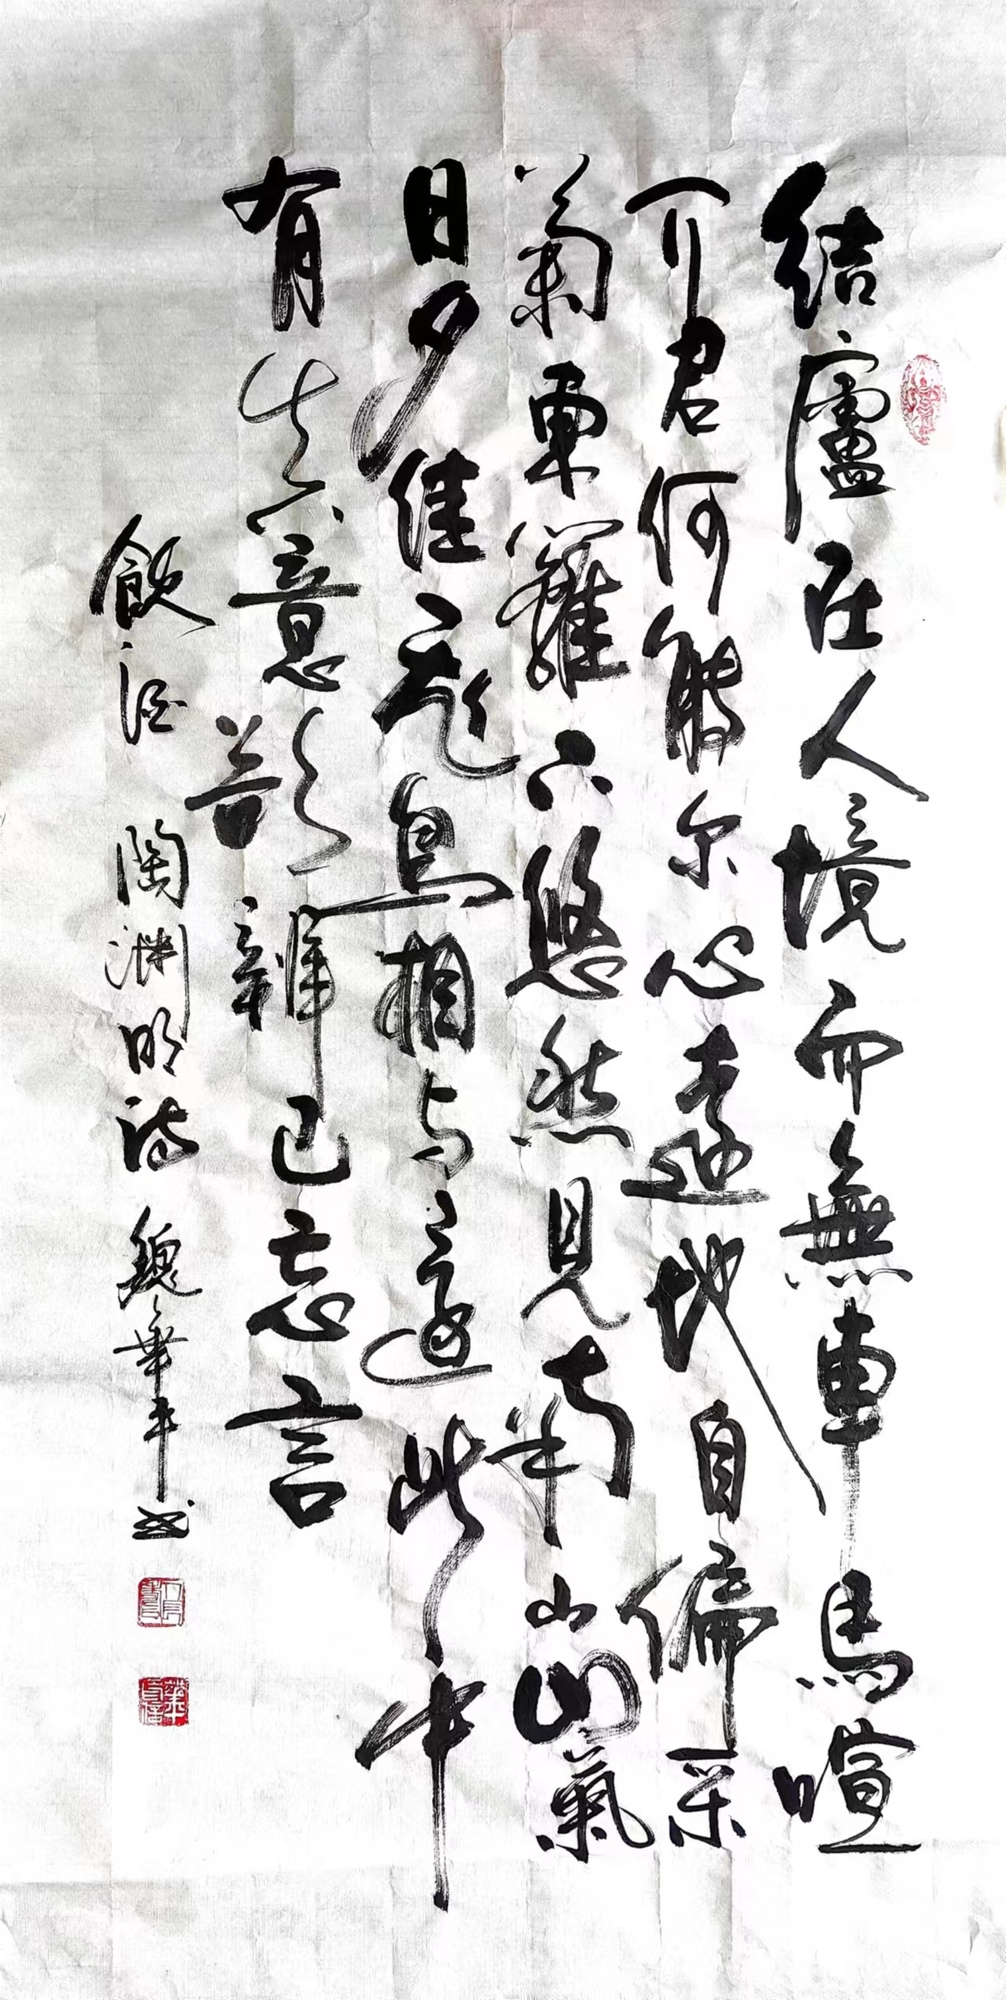 结廬在人境而無車馬喧
问君何能尔心遠地自偏采
菊東籬下悠然見南山山氣
日夕佳飛鳥相与還此中
有真意欲辯已忘言
飲酒 陶淵明詩 魏華平书